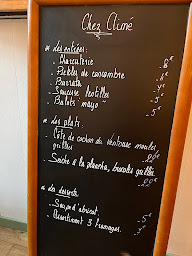 Chez Climé
Les entrées :
. Charcuterie 8€
. Pickles de concombre 4€
. Burrata
. Saucisse lentilles
. Bulots mayo
Les plats :
. Côte de cochon du Ventoux moules,
grillés
. Seiche à la plancha, brocolis grillés
Les desserts
. Soupe d'abricot 5€
. Assortiment 3 fromages.